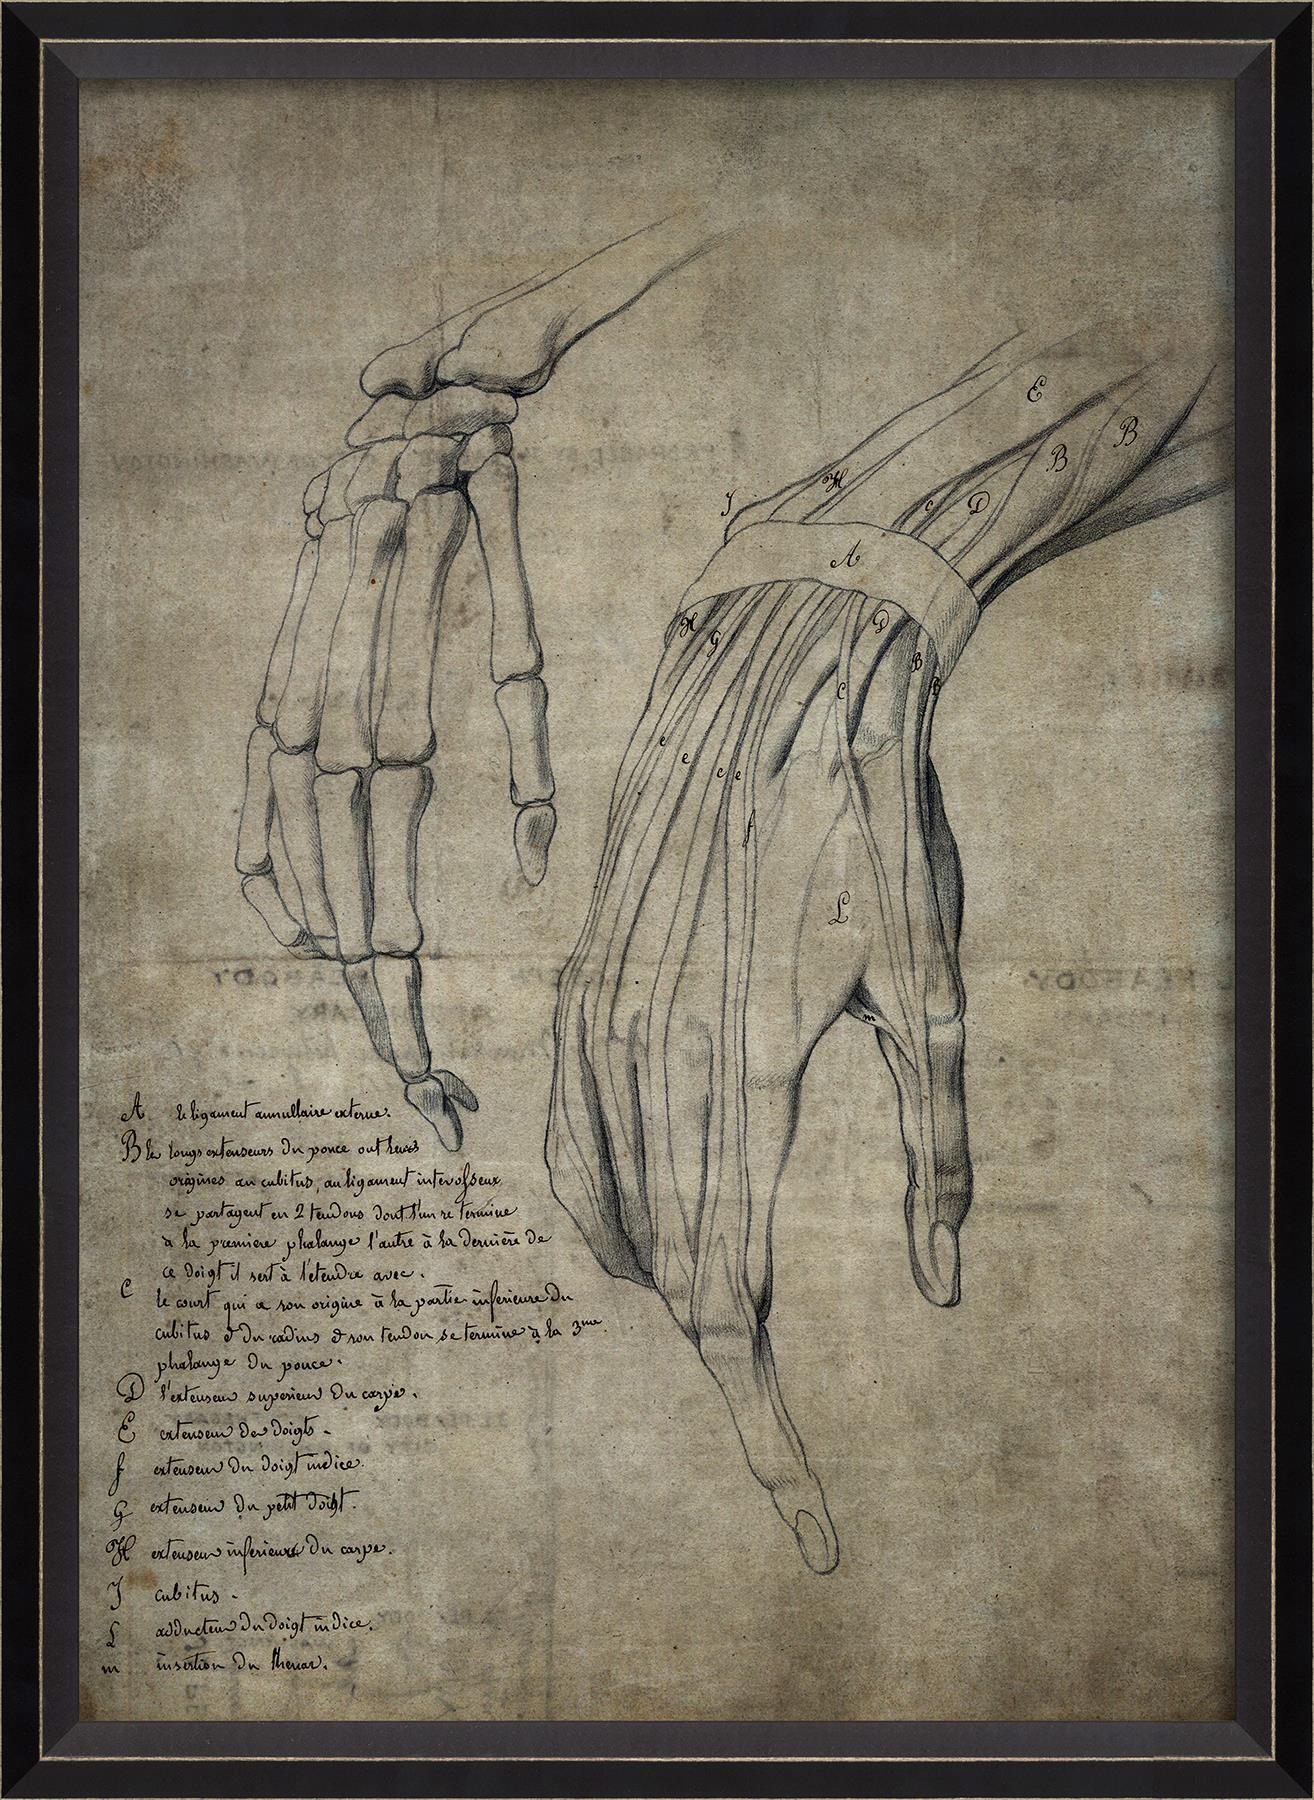 E
B
B
H
J
c
D
A
H
G
D
B
B
C
e
e
e
e
f
L
m
A le ligament annullaire externe.
B les longs extenseurs du pouce ont leurs
origines au cubitus, au ligament interosseux,
se partagent en 2 tendons dont l'un se termine
à la premiere phalange l'autre à la dernière de
ce doigt il sert à l'etendre avec.
C le court qui a son origine à la partie inferieure du
cubitus & du radius & son tendon se termine à la 3me.
phalange du pouce.
D l'extenseur superieur du carpe.
E extenseur des doigts.
f extenseur du doigt indice.
G extenseur du petit doigt.
H extenseur inferieur du carpe.
J cubitus.
L adducteur du doigt indice.
m insertion du thenar.
PEABODY
PEABODY